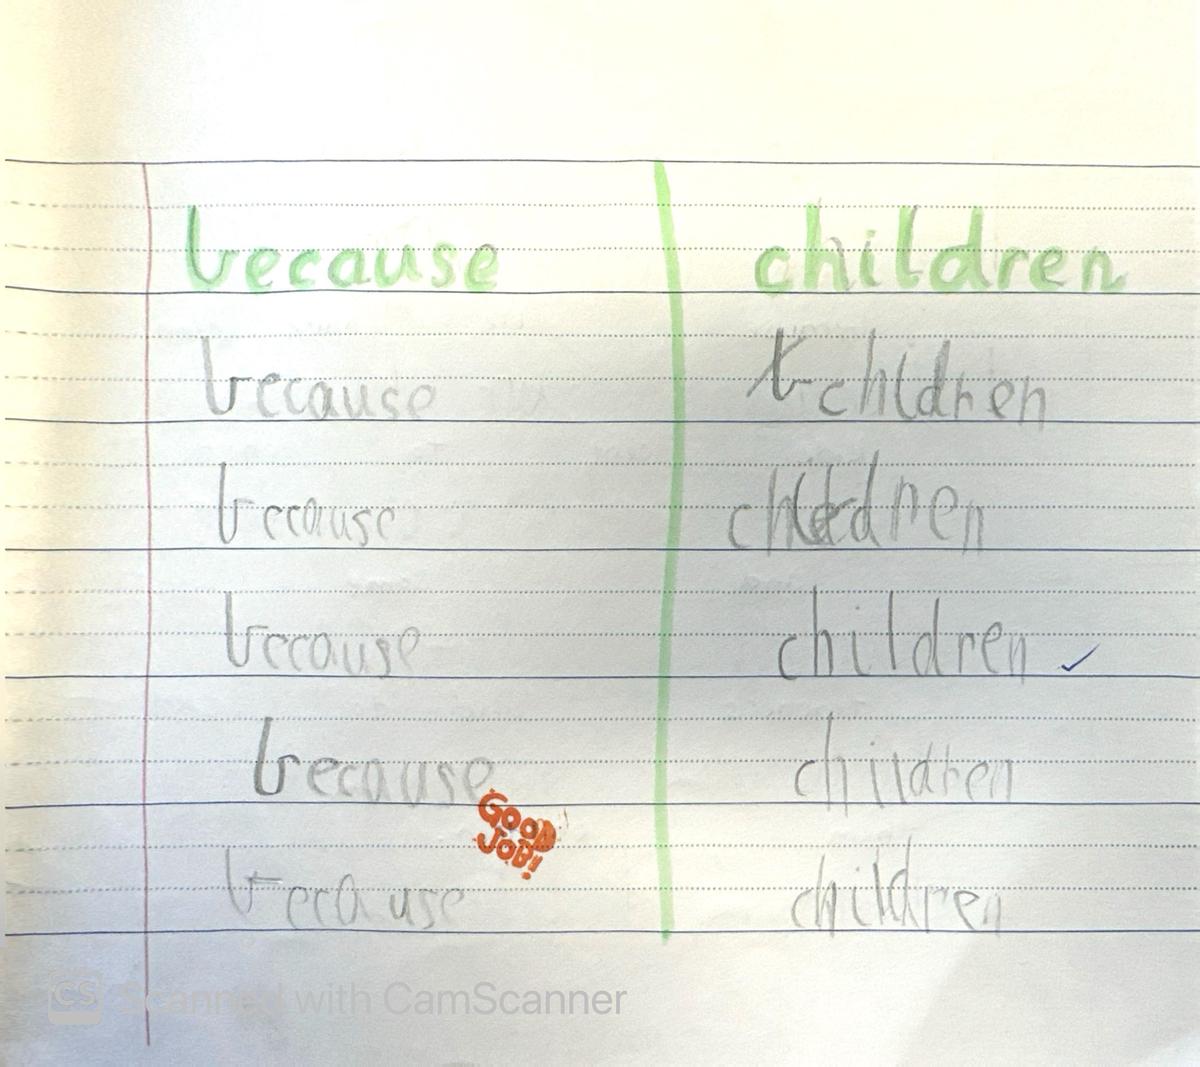 because children
because children
because children
because children ✓
because children
GOOD
JOB!!
because children
CS Scanned with CamScanner